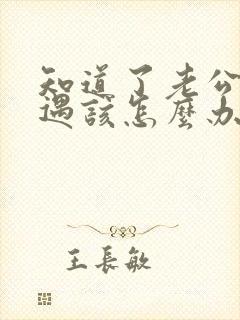 知道了老公
遇該怎麼办
王長敏